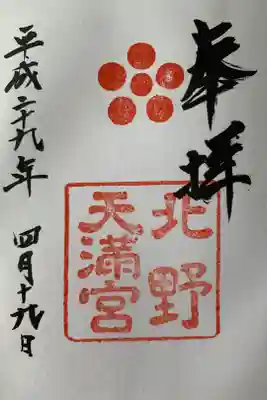 奉拝
北野
天満宮
平成二十九年 四月十九日